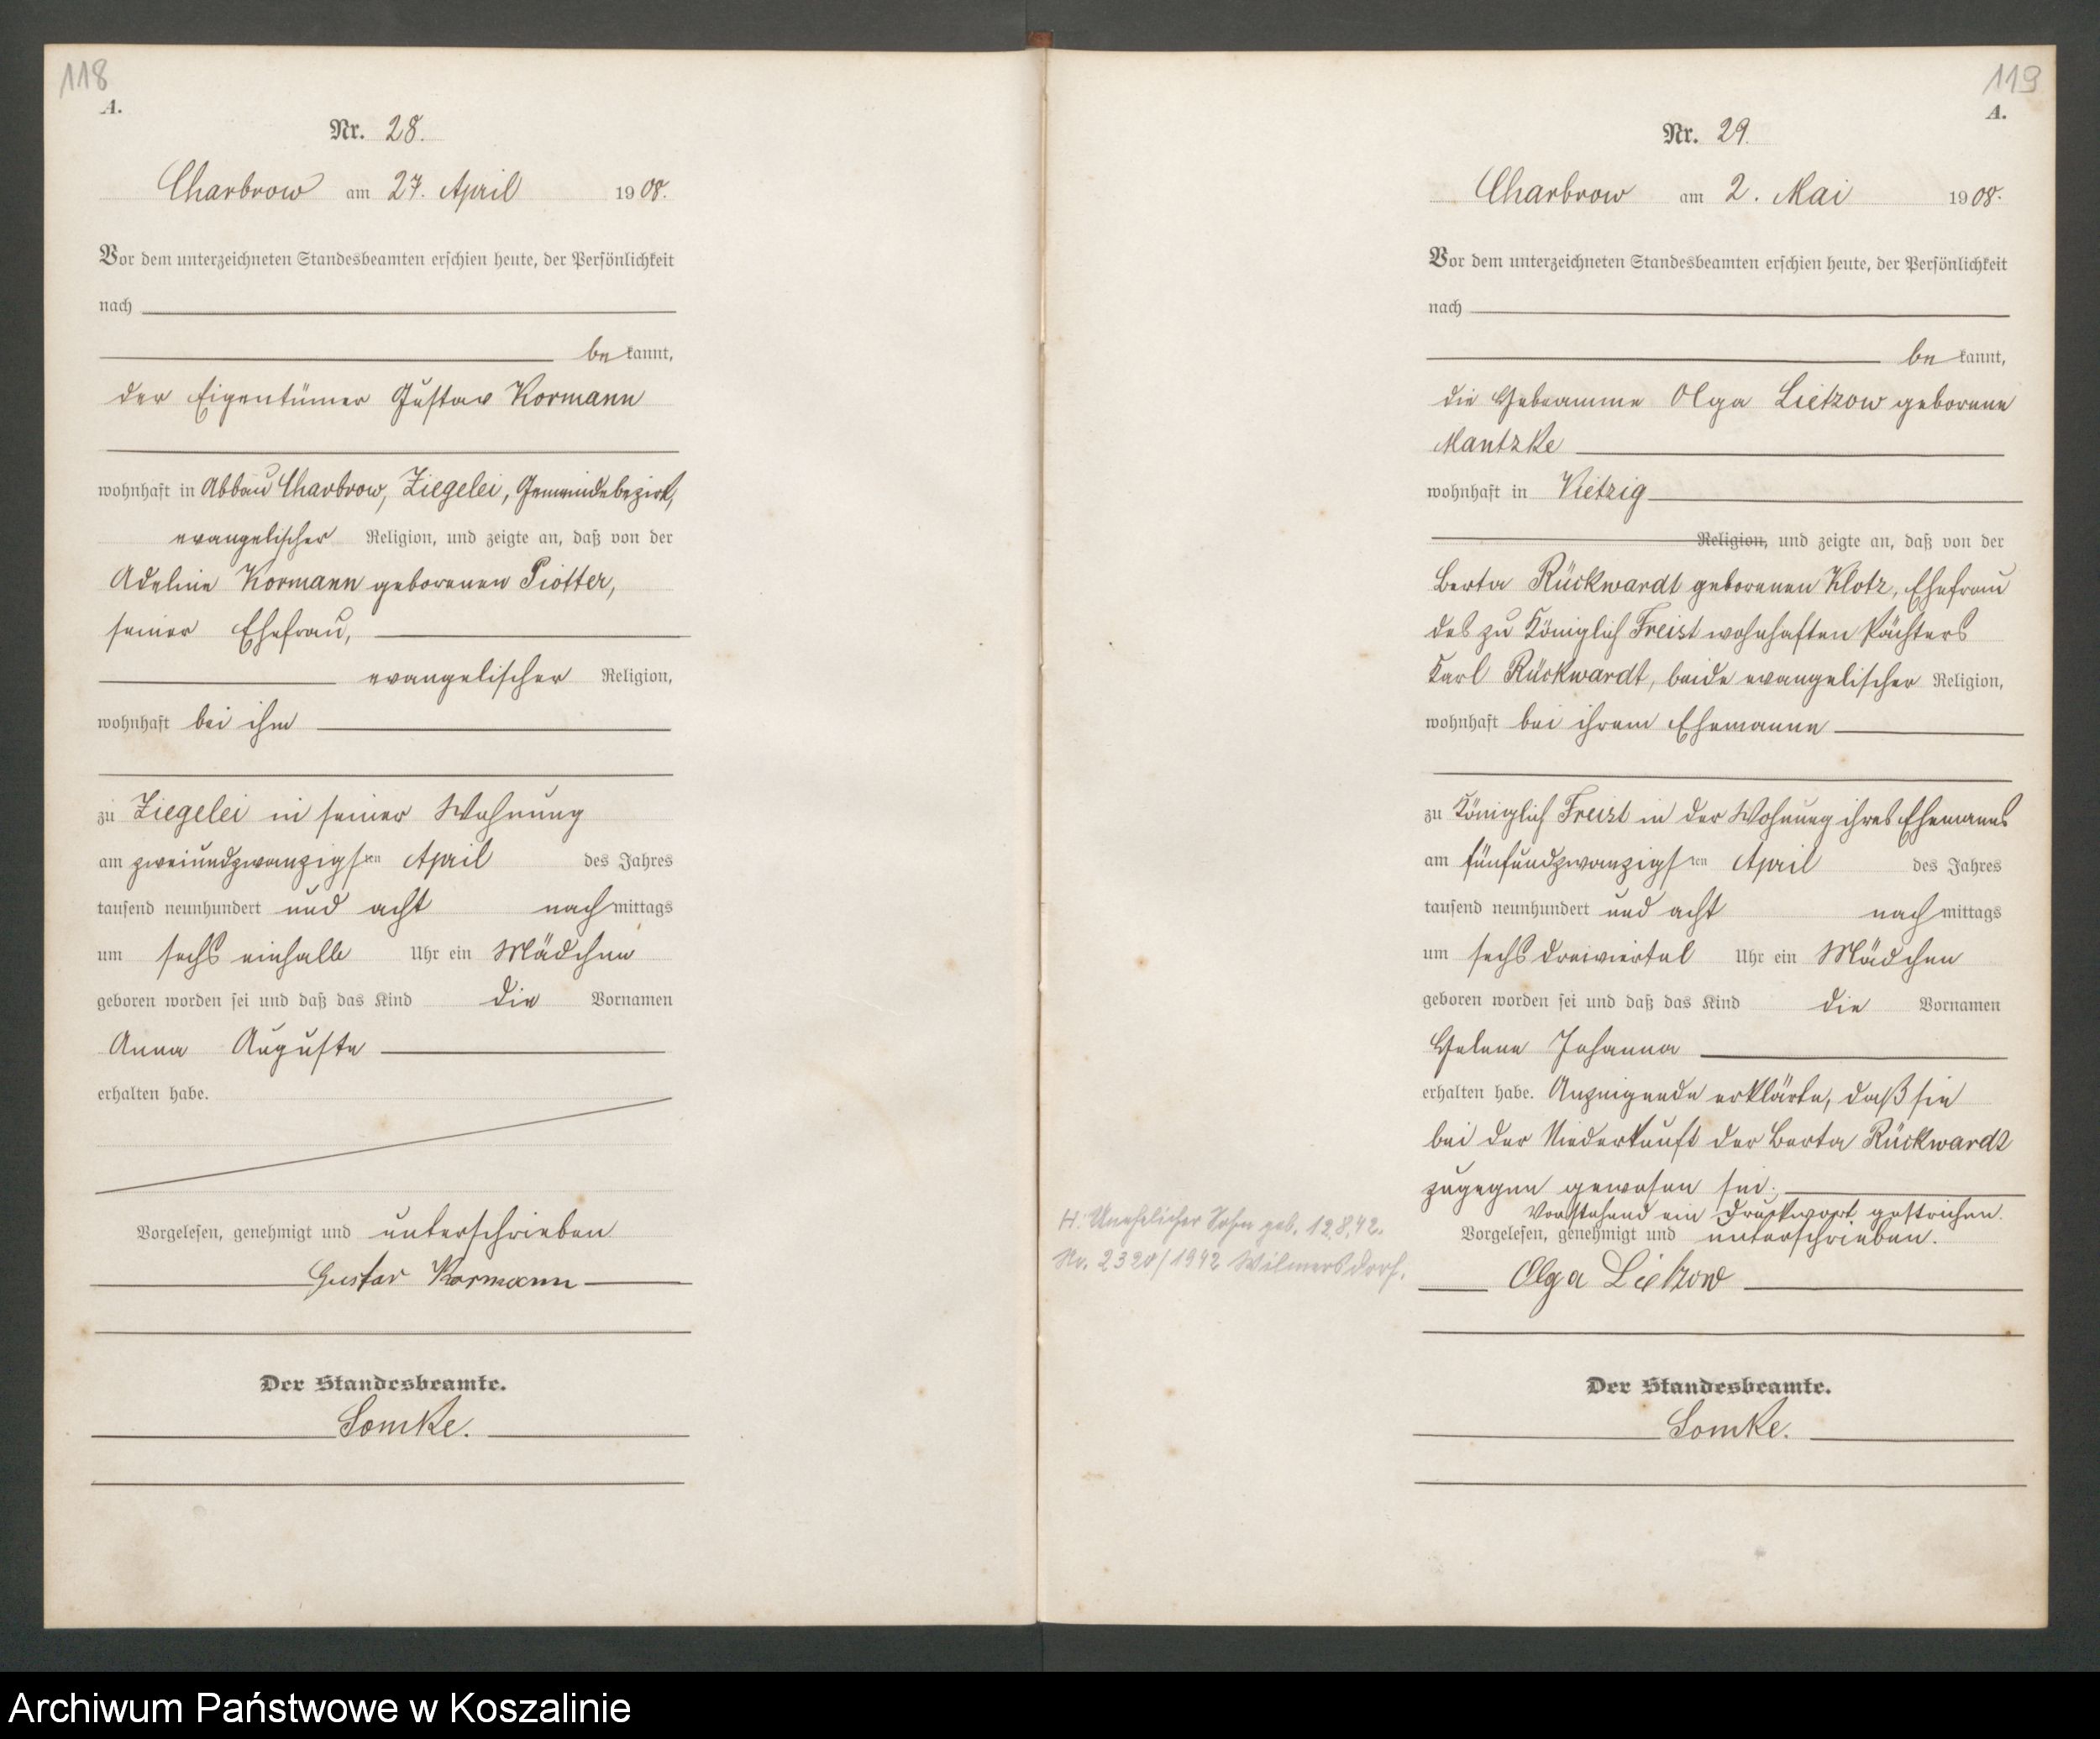 118
A.
Nr. 28.
Charbrow am 27. April 1908.
Vor dem unterzeichneten Standesbeamten erschien heute, der Persönlichkeit
nach
be kannt,
der Eigentümer Gustav Kormann
wohnhaft in Abbau Charbrow, Ziegelei, Gemeindebezirk,
evangelischer Religion, und zeigte an, daß von der
Adeline Kormann geborenen Piotter,
seiner Ehefrau,
evangelischer Religion,
wohnhaft bei ihm
zu Ziegelei in seiner Wohnung
am zweiundzwanzigsten April des Jahres
tausend neunhundert und acht nachmittags
um sechs einhalb Uhr ein Mädchen
geboren worden sei und daß das Kind die Vornamen
Anna Auguste
erhalten habe.
Vorgelesen, genehmigt und unterschrieben
Gustav Kormann
Der Standesbeamte.
Somke.
119
A.
Nr. 29.
Charbrow am 2. Mai 1908.
Vor dem unterzeichneten Standesbeamten erschien heute, der Persönlichkeit
nach
be kannt,
die Hebeamme Olga Lietzow geborene
Mantzke
wohnhaft in Vietzig
Religion, und zeigte an, daß von der
Berta Rückwardt geborenen Klotz, Ehefrau
des zu Königlich Freist wohnhaften Pächters
Karl Rückwardt, beide evangelischer Religion,
wohnhaft bei ihrem Ehemanne
zu Königlich Freist in der Wohnung ihres Ehemanns
am fünfundzwanzigsten April des Jahres
tausend neunhundert und acht nachmittags
um sechs dreiviertel Uhr ein Mädchen
geboren worden sei und daß das Kind die Vornamen
Helene Johanna
erhalten habe. Anzeigende erklärte, daß sie
bei der Niederkunft der Berta Rückwardt
zugegen gewesen sei.
Vorstehend ein Druckwort gestrichen.
Vorgelesen, genehmigt und unterschrieben.
Olga Lietzow
Der Standesbeamte.
Somke.
H: Unehelicher Sohn geb. 12.8.42.
Nr. 2320/1942 Wilmersdorf.
Archiwum Państwowe w Koszalinie